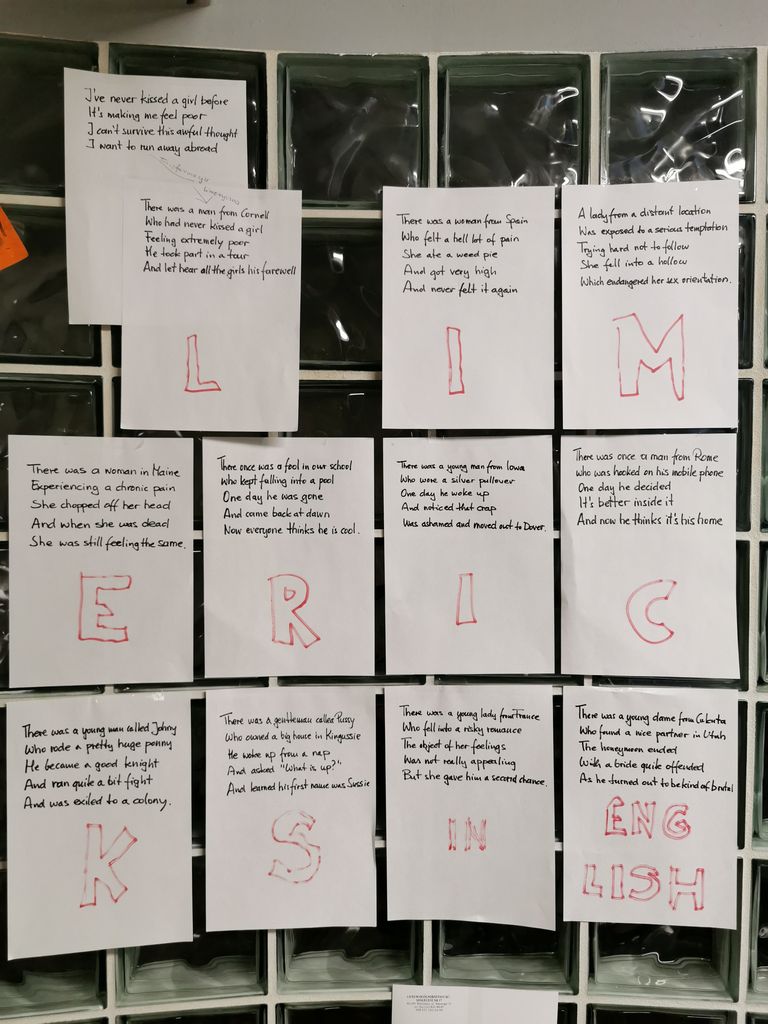 I've never kissed a girl before
It's making me feel poor
I can't survive this awful thought
I want to run away abroad
There was a man from Cornell
Who had never kissed a girl
Feeling extremely poor
He took part in a tour
And let hear all the girls his farewell
L
There was a woman from Spain
Who felt a hell lot of pain
She ate a weed pie
And got very high
And never felt it again
I
A lady from a distant location
Was exposed to a serious temptation
Trying hard not to follow
She fell into a hollow
Which endangered her sex orientation.
M
There was a woman in Maine
Experiencing a chronic pain
She chopped off her head
And when she was dead
She was still feeling the same.
E
There once was a fool in our school
Who kept falling into a pool
One day he was gone
And came back at dawn
Now everyone thinks he is cool.
R
There was a young man from Iowa
Who wore a silver pullover
One day he woke up
And noticed that crap
Was ashamed and moved out to Dover.
I
There was once a man from Rome
who was hooked on his mobile phone
One day he decided
It's better inside it
And now he thinks it's his home
C
There was a young man called Johny
Who rode a pretty huge ponny
He became a good knight
And ran quite a bit fight
And was exiled to a colony.
K
There was a gentleman called Pussy
Who owned a big house in Kingussie
He woke up from a nap
And asked "What is up?"
And learned his first name was Sussie
S
There was a young lady from France
Who fell into a risky romance
The object of her feelings
Was not really appealing
But she gave him a second chance.
IN
There was a young dame from Calcuta
Who found a nice partner in Utah
The honeymoon ended
With a bride quite offended
As he turned out to be kind of brutal
ENG
LISH